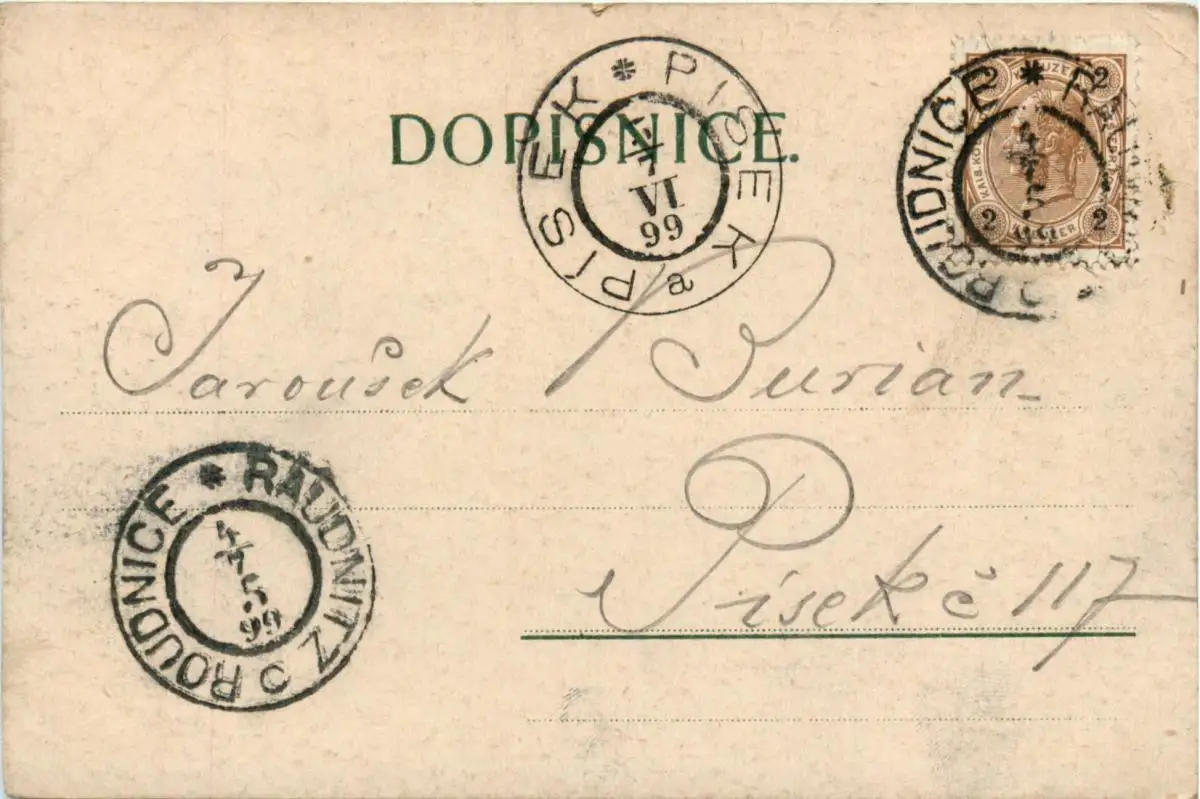 DOPISNICE.
PISEK a PÍSEK
VI
99
2 KREUZER 2
2 2
ROUDNICE
Jaroušek Burian
Písek č 117
RAUDNITZ c ROUDNICE
4
5
99